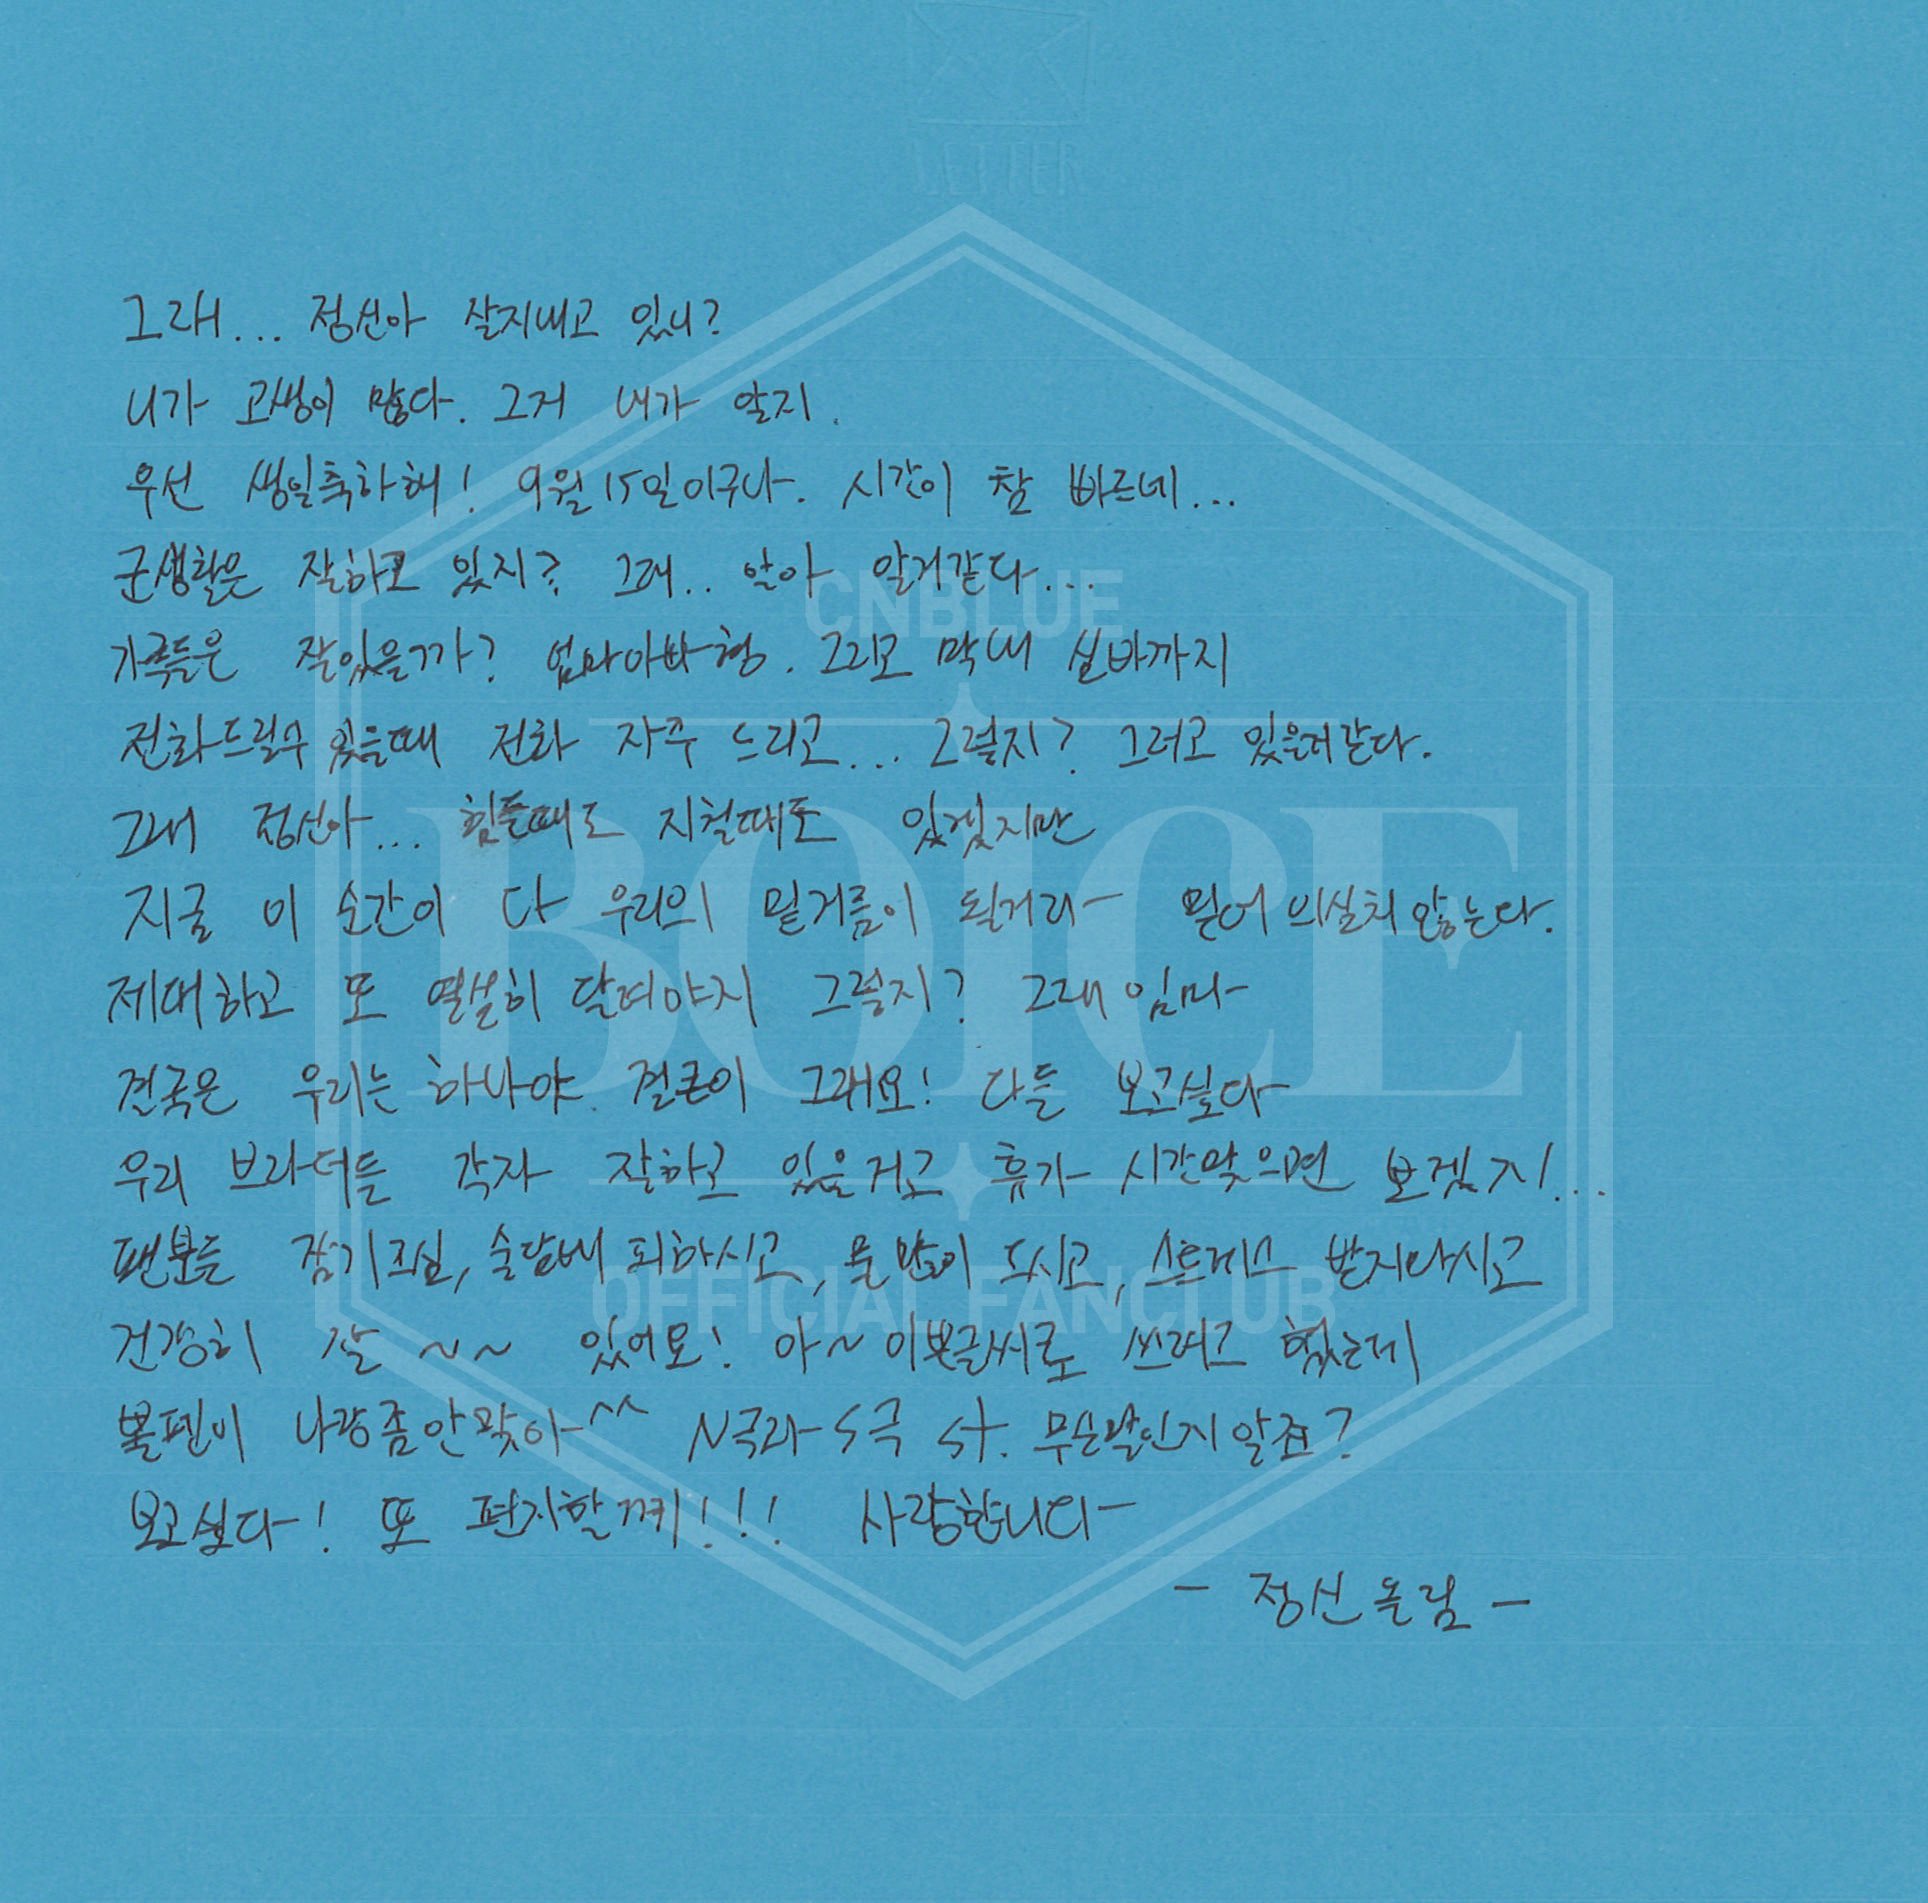 LETTER
그래... 정신아 잘지내고 있니?
니가 고생이 많다. 그거 내가 알지.
우선 생일축하해! 9월 15일이구나. 시간이 참 빠르네...
군생활은 잘하고 있지? 그래.. 알아 알거같다...
CNBLUE
가족들은 잘있을까? 엄마아빠형. 그리고 막내 심바까지
전화드릴수 있을때 전화 자주 드리고... 그렇지? 그러고 있을거같다.
그래 정신아... 힘들때도 지칠때도 있겠지만
BOICE
지금 이 순간이 다 우리의 밑거름이 될거라 믿어 의심치 않는다.
제대하고 또 열심히 달려야지 그렇지? 그래 임마
결국은 우리는 하나야 결론이 그래요! 다들 보고싶다
우리 브라더들 각자 잘하고 있을거고 휴가 시간맞으면 보겠지...
팬분들 감기조심, 술담배 피하시고, 물 많이 드시고, 스트레스 받지마시고
OFFICIAL FANCLUB
건강히 잘 ~~ 있어요! 아~ 이쁜글씨로 쓰려고 했는데
볼펜이 나랑좀안맞아^^ N극과 S극 ㅅㅏ. 무슨말인지알죠?
보고싶다! 또 편지할께!!! 사랑합니다
- 정신올림 -